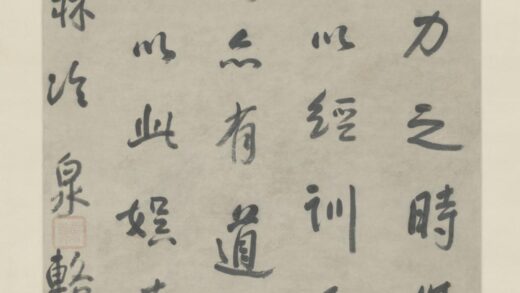 力之時
以經訓
亦有道
以此娯
冷泉